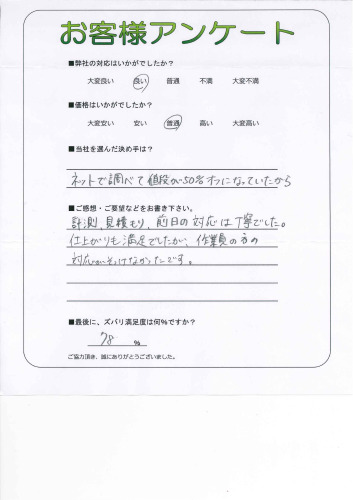 お客様アンケート
■弊社の対応はいかがでしたか？
大変良い 良い 普通 不満 大変不満
■価格はいかがでしたか？
大変安い 安い 普通 高い 大変高い
■当社を選んだ決め手は？
ネットで調べて値段が50%オフになっていたから
■ご感想・ご要望などをお書き下さい。
計測、見積もり、前日の対応は丁寧でした。
仕上がりも満足でしたが、作業員の方の
対応がそっけなかったです。
■最後に、ズバリ満足度は何%ですか？
78 %
ご協力頂き、誠にありがとうございました。